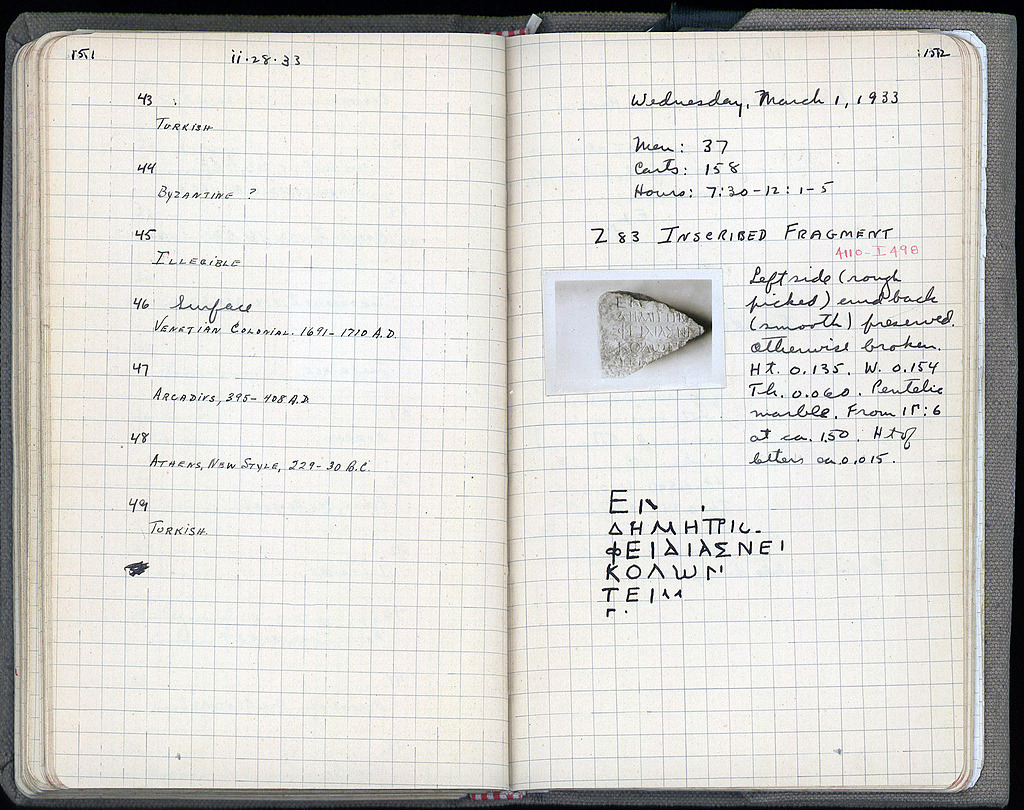 151
ii·28·33
43
TURKISH
44
BYZANTINE ?
45
ILLEGIBLE
46 Surface
VENETIAN COLONIAL. 1691-1710 A.D.
47
ARCADIUS, 395-408 A.D.
48
ATHENS, NEW STYLE, 229-30 B.C.
49
TURKISH.
152
Wednesday, March 1, 1933
Men: 37
Carts: 158
Hours: 7:30-12: 1-5
Z 83 INSCRIBED FRAGMENT
4110-I 498
Left side (rough
picked) and back
(smooth) preserved.
Otherwise broken.
Ht. 0.135. W. 0.154
Th. 0.060. Pentelic
marble. From 1Γ:6
at ca. 1.50. Ht of
letters ca. 0.015.
ΔΗΜΗΤΡΙ
ΦΕΙΔΙΑΣΝΕΙ
ΚΟΛΩΓ
ΤΕΙ